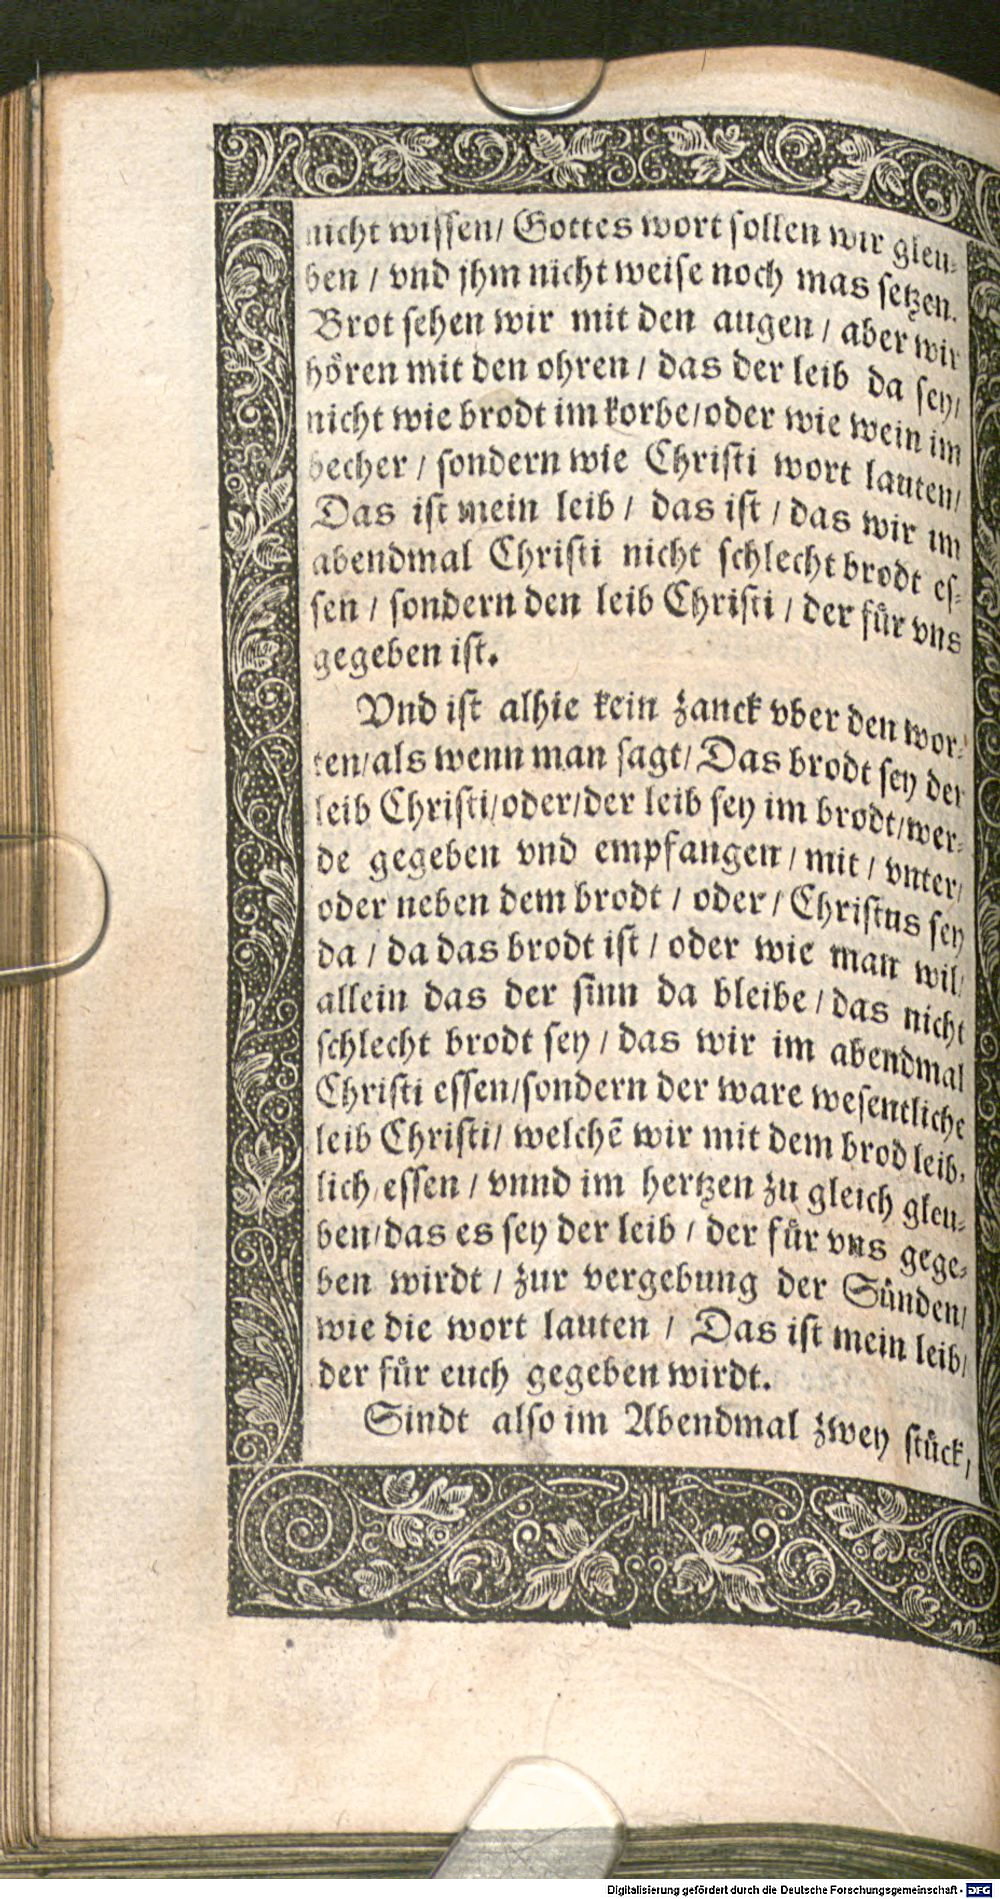 nicht wissen/ Gottes wort sollen wir gleu⸗
ben / vnd jhm nicht weise noch mas setzen.
Brot sehen wir mit den augen / aber wir
hoͤren mit den ohren / das der leib da sey/
nicht wie brodt im korbe/oder wie wein im
becher / sondern wie Christi wort lauten/
Das ist mein leib / das ist / das wir im
abendmal Christi nicht schlecht brodt es⸗
sen / sondern den leib Christi / der fuͤr vns
gegeben ist.
Vnd ist alhie kein zanck vber den wor⸗
ten/als wenn man sagt/ Das brodt sey der
leib Christi/oder/der leib sey im brodt/wer⸗
de gegeben vnd empfangen / mit / vnter/
oder neben dem brodt / oder / Christus sey
da / da das brodt ist / oder wie man wil/
allein das der sinn da bleibe / das nicht
schlecht brodt sey / das wir im abendmal
Christi essen/sondern der ware wesentliche
leib Christi/ welchē wir mit dem brod leib⸗
lich essen / vnnd im hertzen zu gleich gleu⸗
ben/das es sey der leib / der fuͤr vns gege⸗
ben wirdt / zur vergebung der Suͤnden/
wie die wort lauten / Das ist mein leib/
der fuͤr euch gegeben wirdt.
Sindt also im Abendmal zwey stuͤck,
Digitalisierung gefördert durch die Deutsche Forschungsgemeinschaft - DFG